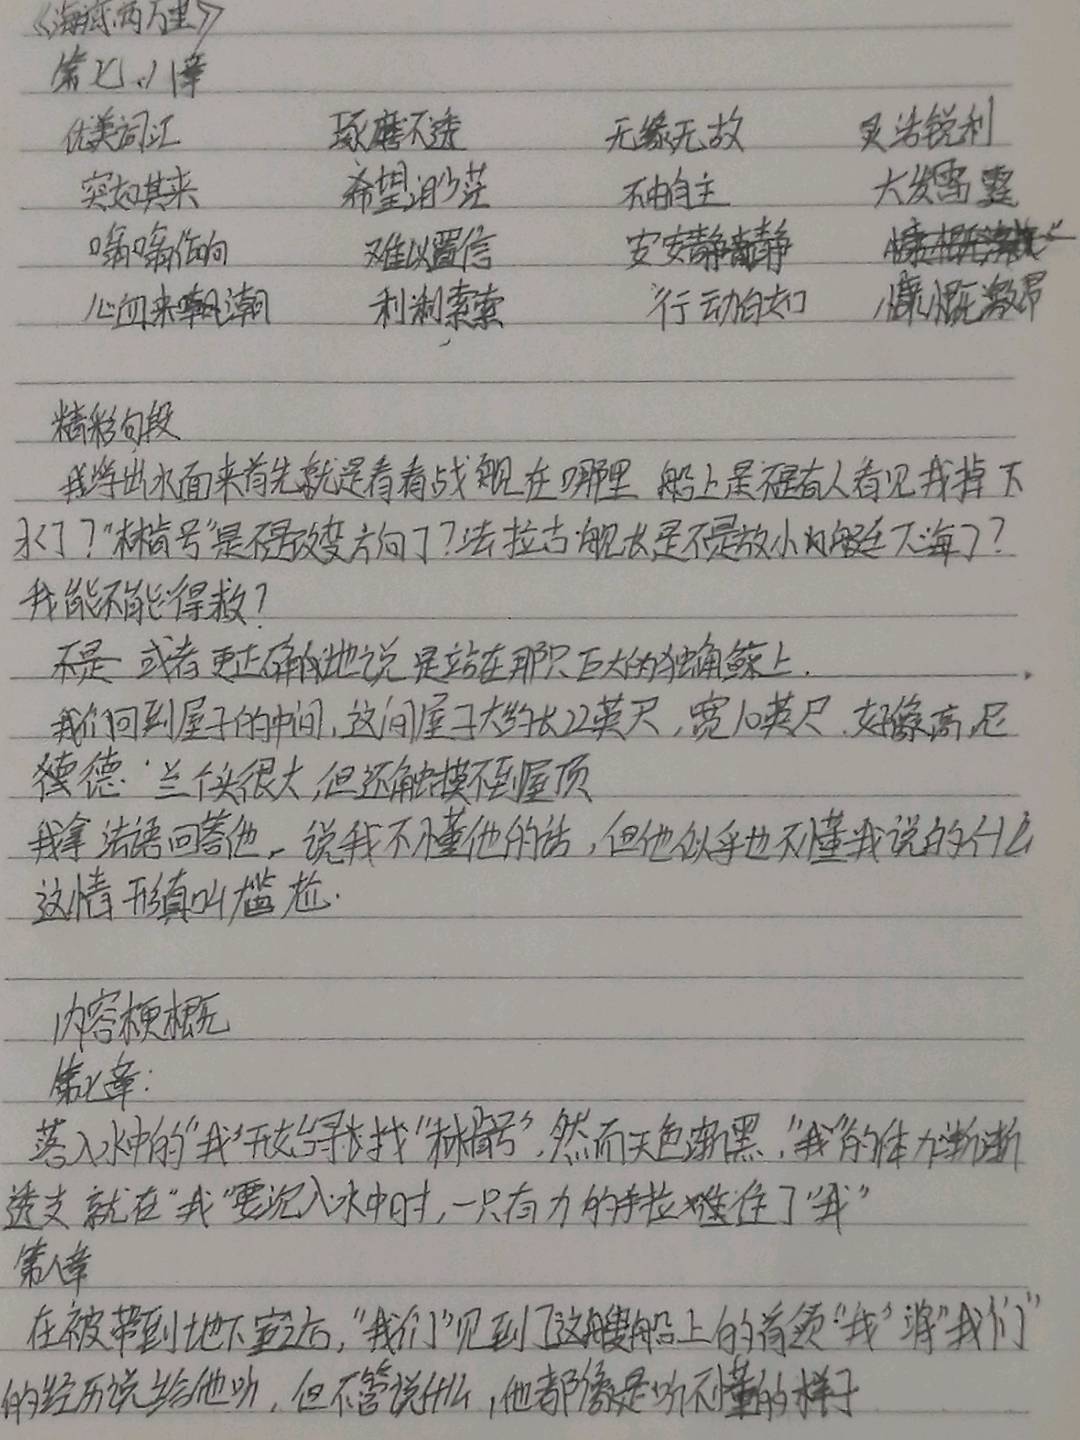 《海底两万里》
第七、八章
优美词汇 琢磨不透 无缘无故 灵活锐利
突如其来 希望渺茫 不由自主 大发雷霆
嗡嗡作响 难以置信 安安静静
心血来潮 利利索索 行动自如 慷慨激昂
精彩句段
我浮出水面来首先就是看看战舰在哪里 船上是不是有人看见我掉下
水了？"林肯号"是不是改变方向了？法拉古舰长是不是放小艇下海了？
我能不能得救？
不是 或者更正确的地说是站在那只巨大的独角鲸上.
我们回到屋子的中间,这间屋子大约长22英尺,宽10英尺.好像高,尼
德·兰个头很大,但还触摸不到屋顶
我拿法语回答他,说我不懂他的话,但他似乎也不懂我说的什么
这情形真叫尴尬.
内容梗概
第七章:
落入水中的"我"开始寻找"林肯号",然而天色渐黑,"我"的体力渐渐
透支 就在"我"要沉入水中时,一只有力的手拉住了"我"
第八章
在被带到地下室之后,"我们"见到了这艘船上的首领"我"将"我们"
的经历说给他听,但不管说什么,他都像是听不懂的样子